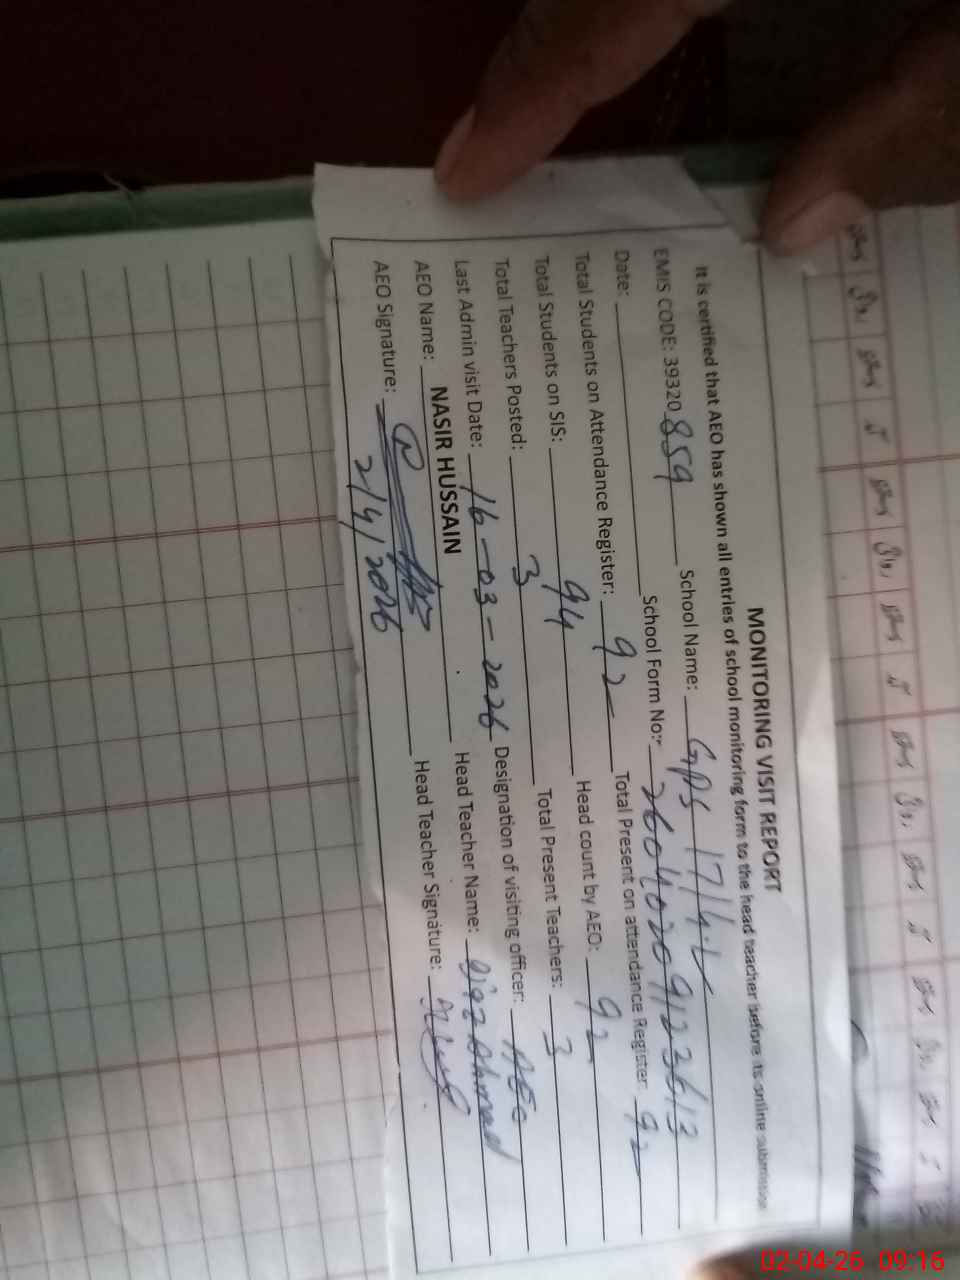 MONITORING VISIT REPORT
It is certified that AEO has shown all entries of school monitoring form to the head teacher before its online submission
EMIS CODE: 39320 859 School Name: GPS 17/1.L
Date: School Form No:
Total Students on Attendance Register: 92 Total Present on attendance Register: 92
Total Students on SIS: 94 Head count by AEO: 92
Total Teachers Posted: 3 Total Present Teachers: 3
Last Admin visit Date: 16-03-2026 Designation of visiting officer: AEO
AEO Name: NASIR HUSSAIN Head Teacher Name: Ahmad
AEO Signature: Head Teacher Signature:
2/4/2026
02-04-26 09:16